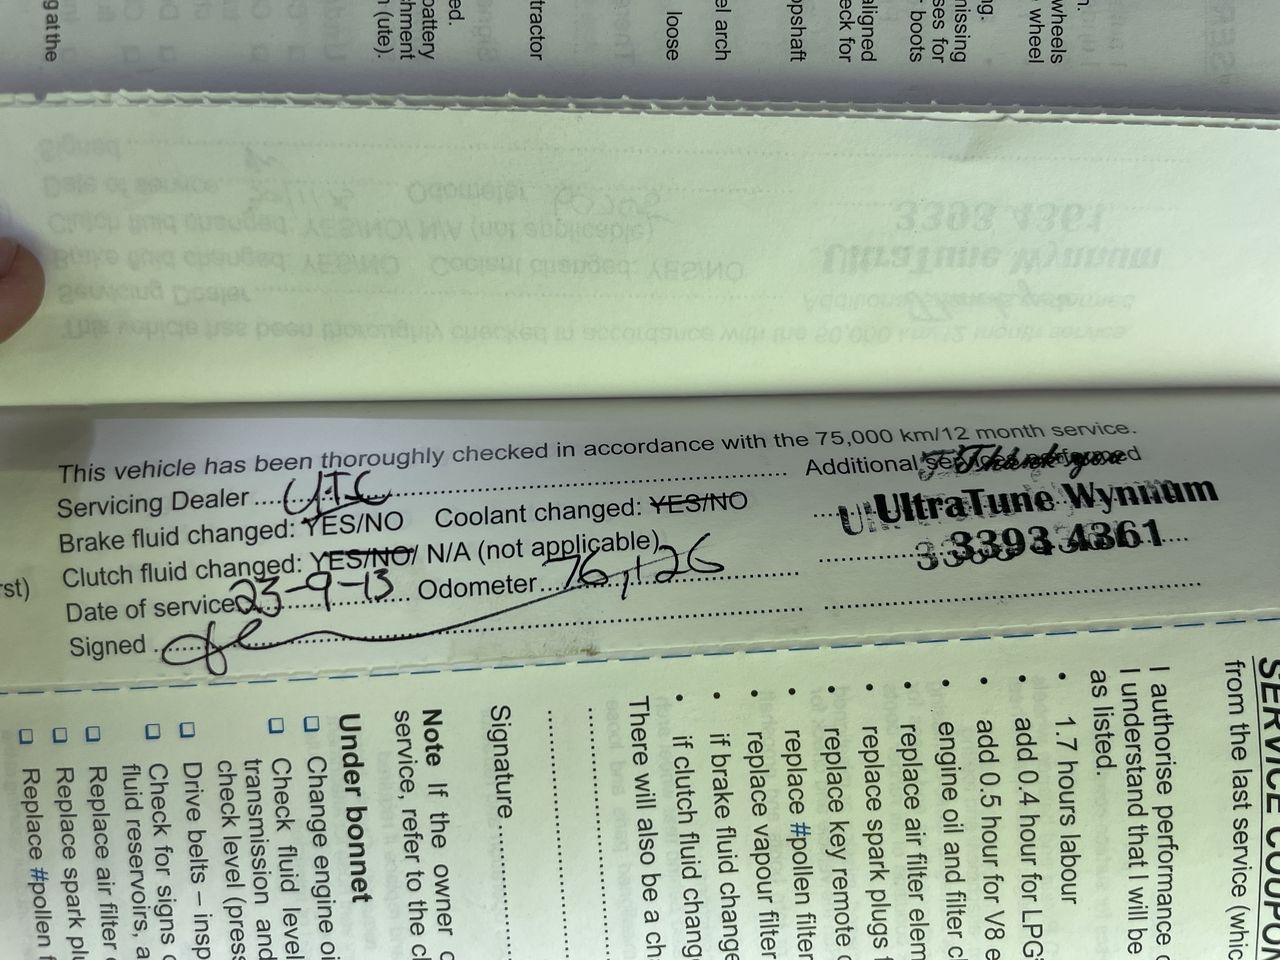 g at the
battery
ed.
hment
n (ute).
tractor
loose
el arch
opshaft
aligned
eck for
boots
ses for
nissing
ng.
wheel
wheels
n.
This vehicle has been thoroughly checked in accordance with the 75,000 km/12 month service.
Servicing Dealer UTC Additional services performed
Thank you
Brake fluid changed: YES/NO Coolant changed: YES/NO
UltraTune Wynnum
Clutch fluid changed: YES/NO/ N/A (not applicable)
3393 4361
Date of service 23-9-13 Odometer 76,126
Signed
rst)
SERVICE COUPON
from the last service (whic
I authorise performance
I understand that I will be
as listed.
• 1.7 hours labour
• add 0.4 hour for LPG
• add 0.5 hour for V8 e
• engine oil and filter c
• replace air filter elem
• replace spark plugs
• replace key remote
• replace #pollen filter
• replace vapour filter
• if brake fluid change
• if clutch fluid chang
There will also be a cha
Signature
Note If the owner
service, refer to the c
Under bonnet
Change engine oi
Check fluid level
transmission and
check level (press
Drive belts – insp
Check for signs
fluid reservoirs, a
Replace air filter
Replace spark plu
Replace #pollen f